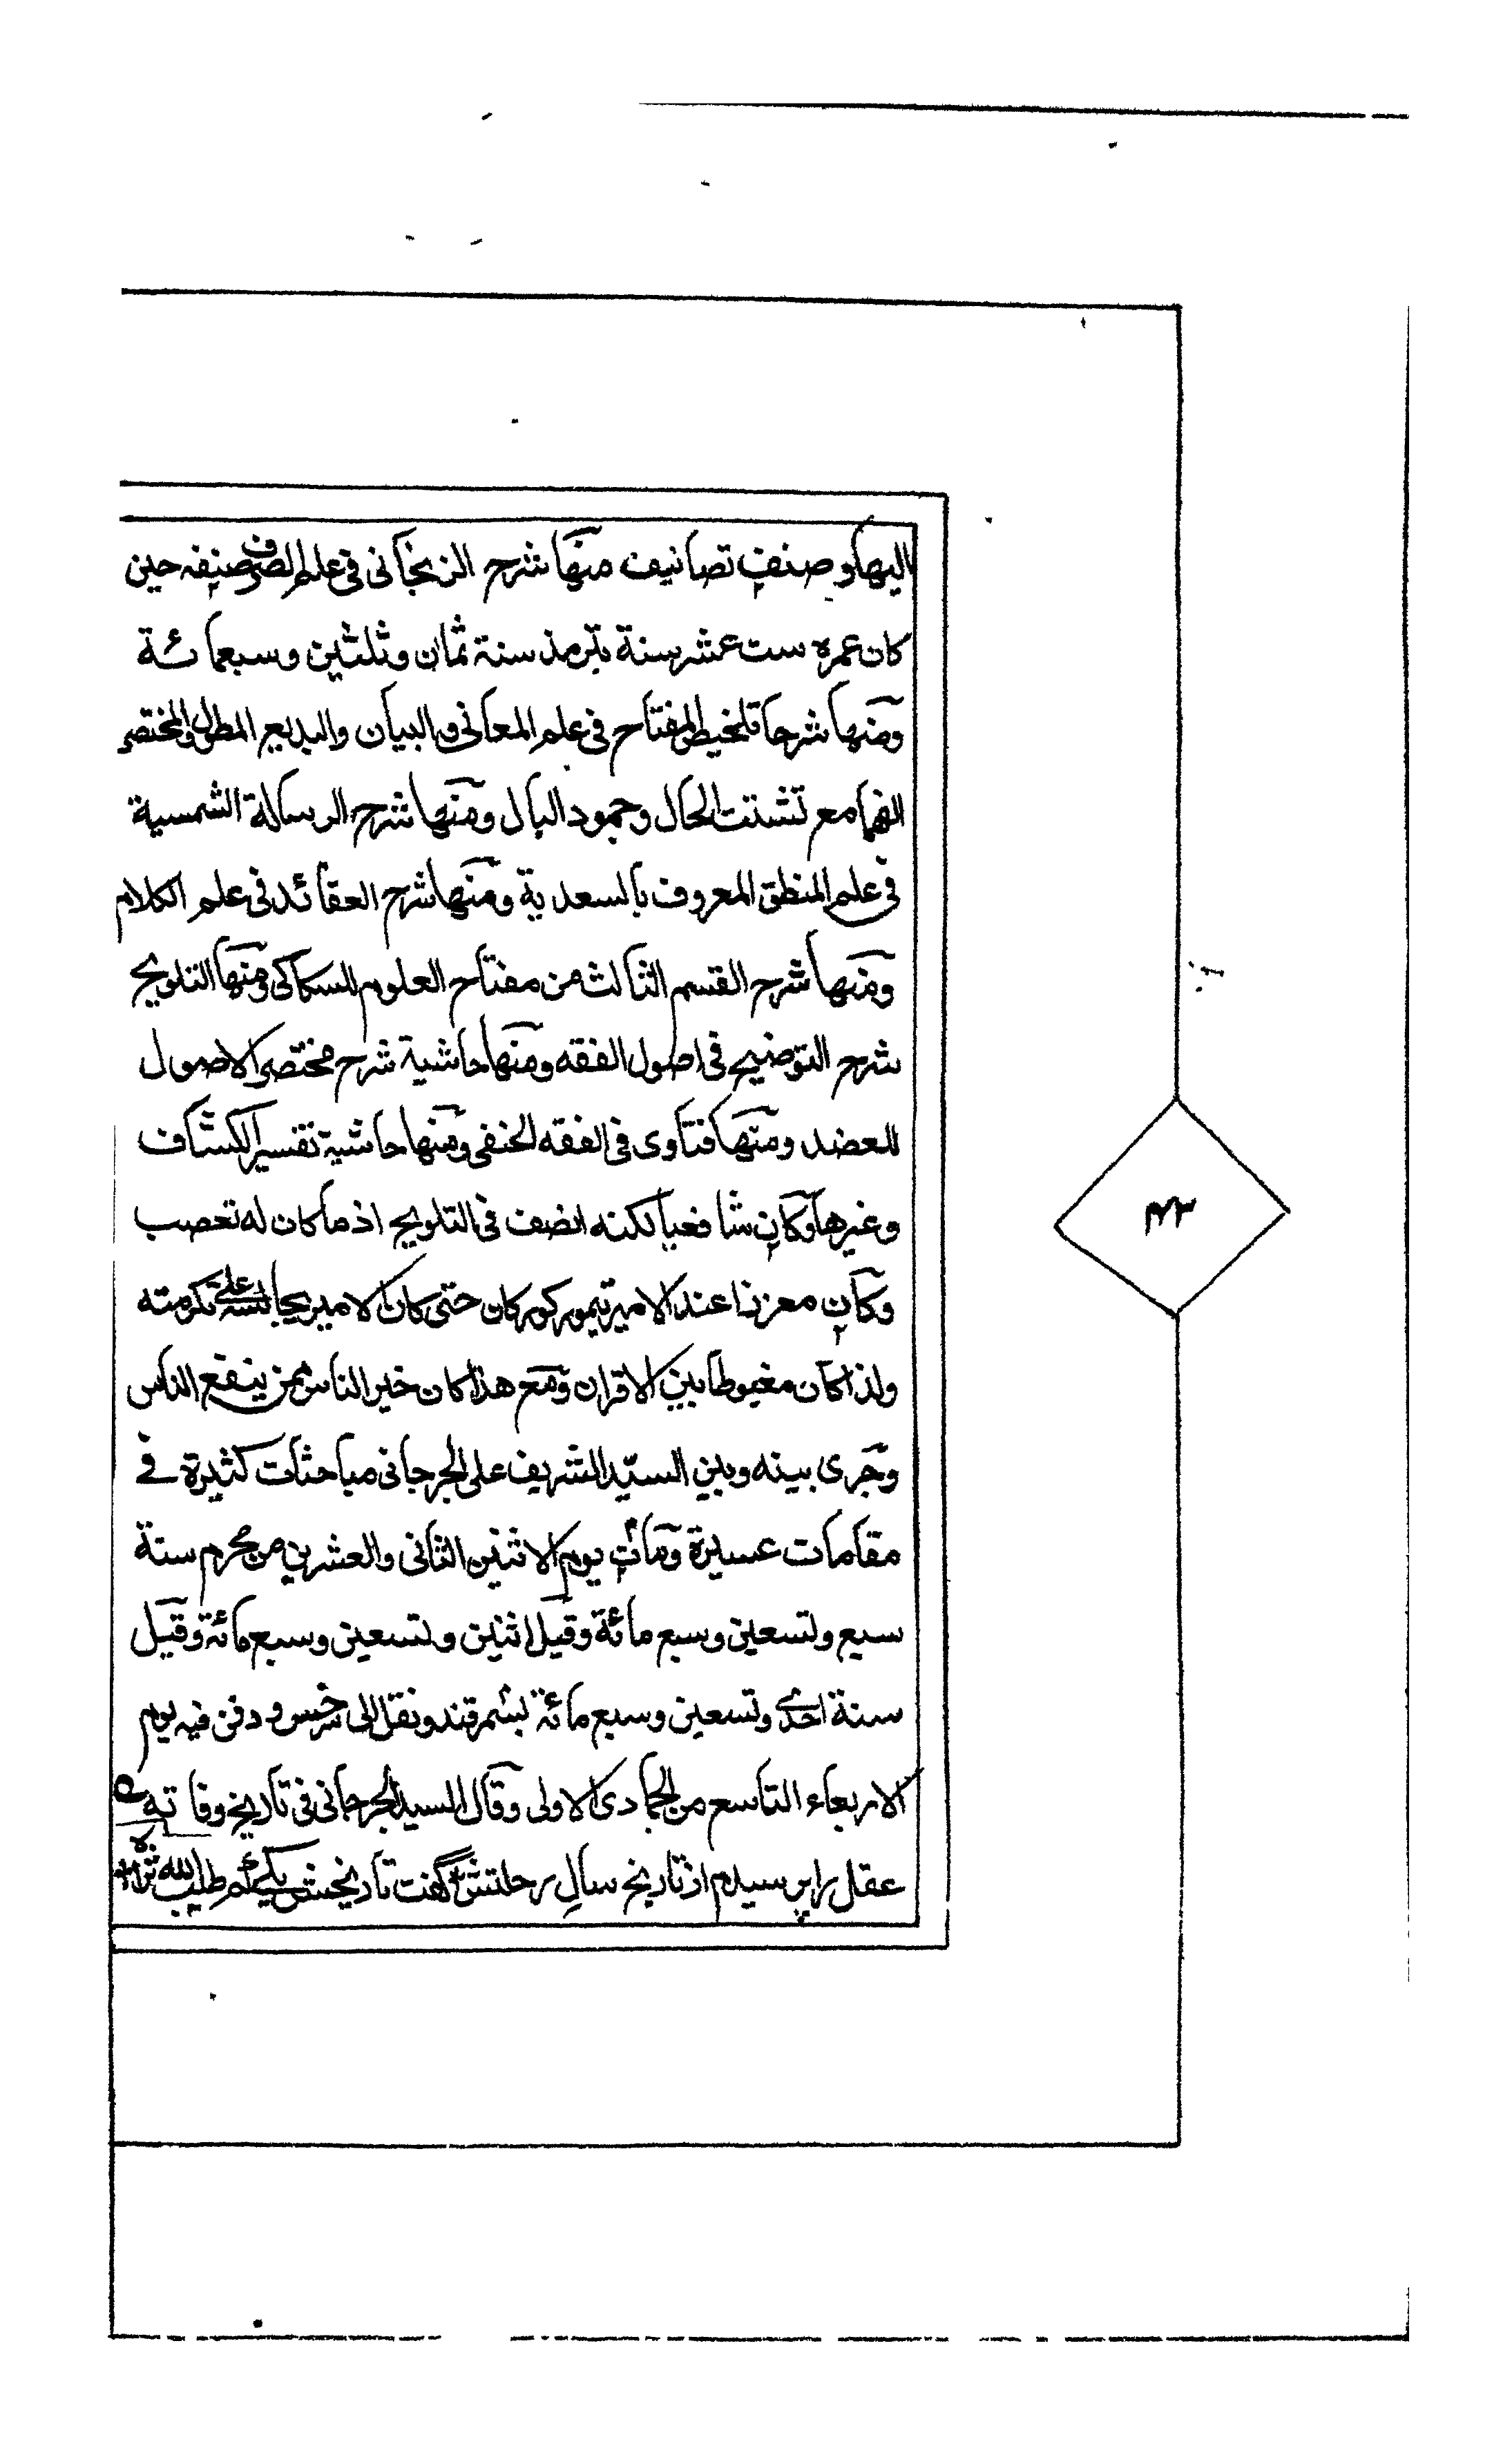 اليها وصنف تصانيف منها شرح الزنجانى فى علم الصرف صنفه حين
كان عمره ست عشر سنة بترمذ سنة ثمان وثلثين وسبعمائة
ومنها شرحا تلخيص المفتاح فى علم المعانى والبيان والبديع المطول والمختصر
الفهما مع تشتت الحال وجمود البال ومنها شرح الرسالة الشمسية
فى علم المنطق المعروف بالسعدية ومنها شرح العقائد فى علم الكلام
ومنها شرح القسم الثالث من مفتاح العلوم للسكاكى ومنها التلويح
شرح التوضيح فى اصول الفقه ومنها حاشية شرح مختصر الاصول
للعضد ومنها فتاوى فى الفقه الحنفى ومنها حاشية تفسير الكشاف
وغيرها وكان شافعيا لكنه انصف فى التلويح اذ ما كان له تعصب
وكان معززا عند الامير تيمور كوركان حتى كان الامير يجالسه على تكرمته
ولذا كان مغبوطا بين الاقران ومع هذا كان خير الناس ممن ينفع الناس
وجرى بينه وبين السيّد الشريف على الجرجانى مباحثات كثيرة فے
مقامات عسيرة ومات يوم الاثنين الثانى والعشرين من محرم سنة
سبع وتسعين وسبع مائة وقيل اثنين وتسعين وسبع مائة وقيل
سنة احدى وتسعين وسبع مائة بسمرقند ونقل الى سرخس ودفن فيه يوم
الاربعاء التاسع من الجمادى الاولى وقال السيد الجرجانى فى تاريخ وفاته ٥
عقل را پرسيدم از تاريخ سال رحلتش گفت تاريخش يكے كم طيب الله ثراه
٤٣